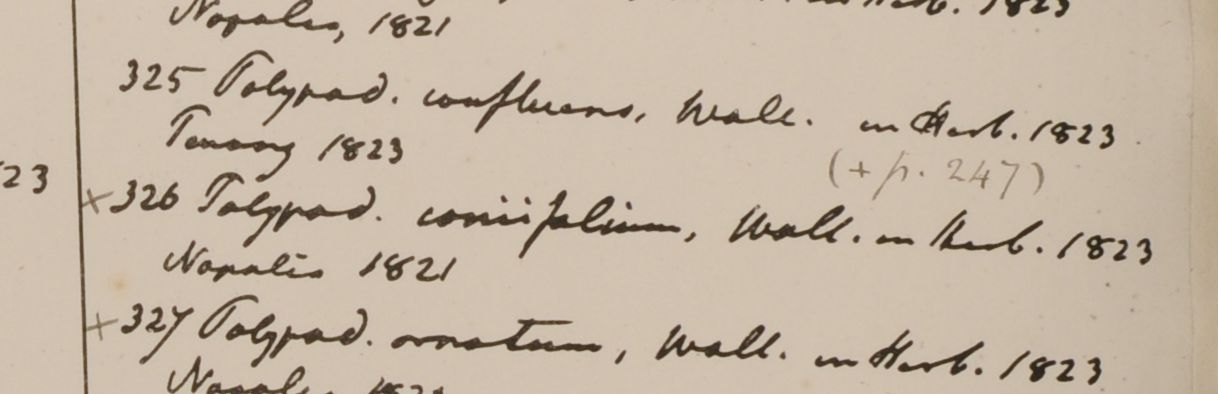 Napalia, 1821 in Herb. 1823
325 Polypod. confluens, Wall. in Herb. 1823
Penang 1823
(+ p. 247)
23
× 326 Polypod. coniifolium, Wall. in Herb. 1823
Napalia 1821
× 327 Polypod. ornatum, Wall. in Herb. 1823
Napalia